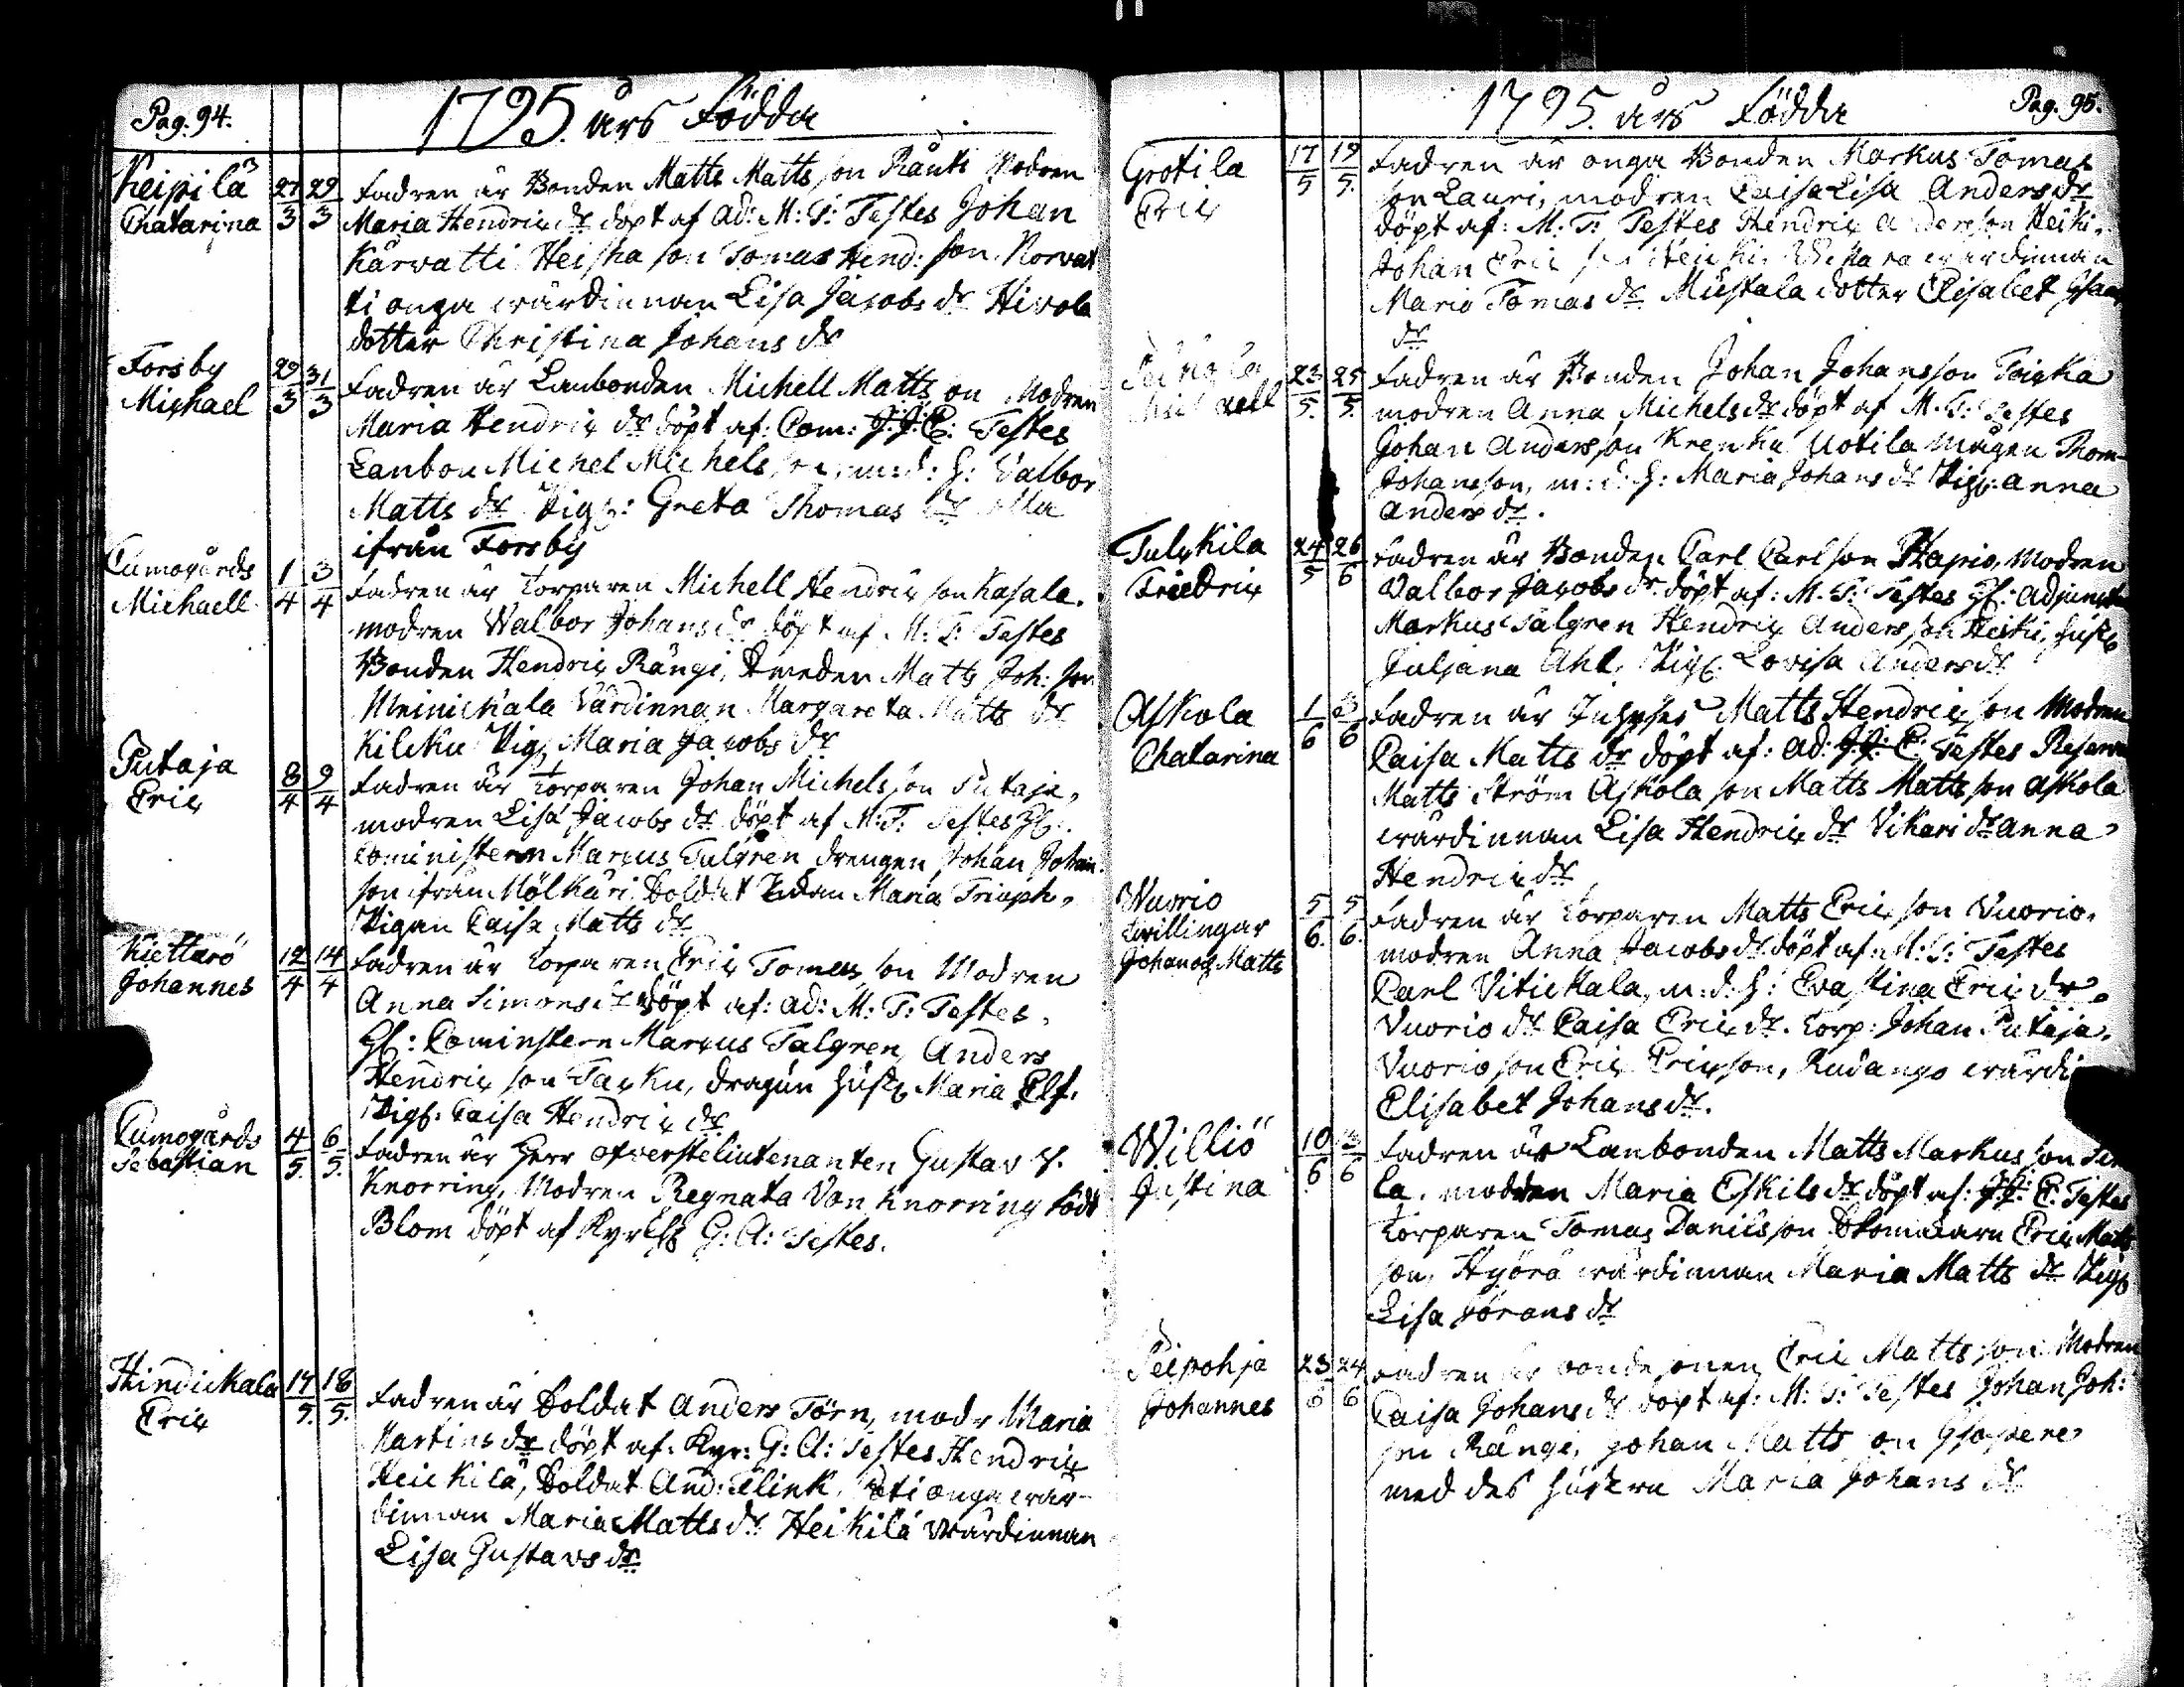 Pag. 94.
1795. års Födda
Keipilä 27/3 29/3 Fadren är Bonden Matts Mattsson Räuti Modren
Chatarina Maria Hendrix dr döpt af Ad: M: T: Testes Johan
Karvatti Heisha son Tomas Hend: son Korvat
ti onga wärdinnan Lisa Jacobs dr Hivola
dotter Christina Johans dr
Forsby 29/3 31/3 Fadren är Lanbonden Michell Mattsson Modren
Michael Maria Hendrix dr döpt af: Com: J. J. C: Testes
Lanbon Michel Michels son, m: d: H: Valbor
Matts dr Pig: Greta Thomas dr alla
ifrån Forsby
Cumogårds 1/4 3/4 Fadren är Torparen Michell Hendrix son Kasala.
Michaell modren Walbor Johans dr döpt af M: T: Testes
Bonden Hendrix Rängi, Matts Joh: son
Meinickala Värdinnan Margareta Matts dr
Kilcku Pig: Maria Jacobs dr
Putaja 8/4 9/4 Fadren är Torparen Johan Michels son Putaja,
Eric modren Lisa Jacobs dr döpt af M: T: Testes H:
Cominstern Marcus Talgren drengen Johan Johan
son ifrån Mölkäri Soldat Maria Triuph,
Pigan Caisa Matts dr
Kiettarö 12/4 14/4 Fadren är Torparen Eric Tomas son Modren
Johannes Anna Simons dr döpt af: ad: M: T: Testes.
H: Cominstern Marcus Talgren, Anders
Hendrix son Tacku, dragun hust: Maria Elf.
Pig: Caisa Hendrix dr
Cumogårds 4/5 6/5 Fadren är Herr öfverstelieutenanten Gustav v.
Sebastian Knorring, Modren Regnata Von Knorring född
Blom döpt af Kyrkh: G: A: Testes.
Hindickala 14/5 18/5 Fadren är Soldat Anders Törn, modr Maria
Eric Martins dr döpt af: Kyr: G: A: Testes Hendrix
Heickilä, Soldat And: Flink, onga wär-
dinnan Maria Matts dr Heikilä wärdinnan
Lisa Gustavs dr
Pag. 95.
1795. års Födda
Grotila 17/5 19/5 Fadren är onga Bonden Markus Tomas
Eric son Lauri, modren Caisa Lisa Anders dr
döpt af: M: T: Testes Hendrix Andersson Heiki,
Johan Eric son wärdinnan
Maria Tomas dr Mustala dotter Elisabet
dr
23/5 25/5 Fadren är Bonden Johan Johansson Toicka
modren Anna Michels dr döpt af M. T: Testes
Johan Andersson Krenku Uotila mågen Thom-
Johansson, m: d: H: Maria Johans dr Pig: Anna
Anders dr.
Tulckila 24/5 26/6 Fadren är Bonden Carl Carlsson Tapio, Modren
Friedrix Valbor Jacobs dr döpt af: M. T: Testes H: Adjuncten
Markus Talgren Hendrix Andersson Heiki, hust:
Juliana Ahl, Pig: Lovisa Anders dr
Askola 1/6 3/6 Fadren är Inhyses Matts Hendrix son Modren
Chatarina Caisa Matts dr döpt af: Ad: J. J: C: Testes Reserv
Matts Ström Askola son Matts Matts son Askola
wärdinnan Lisa Hendrix dr Vikari dr Anna
Hendrix dr
Wuorio 5/6 5/6. Fadren är Torparen Matts Eric son Vuorio.
twillingar modren Anna Jacobs dr döpt af: M: T: Testes
Johan och Matts Carl Vitickala, m: d: H: Eva Stina Eric dr,
Vuorio dr Caisa Eric dr. Torp: Johan Putaja.
Vuorio son Eric Ericsson, Rudango wärdi
Elisabet Johans dr.
Williö 10/6 13/6 Fadren är Lanbonden Matts Markus son
Justina la, modren Maria Eskils dr döpt af: J. J: C: Testes
Torparen Tomas Daniels son Skomakarn Eric Matts
son, Hyörä wärdinnan Maria Matts dr Pig:
Lisa Jörans dr
Peipohja 23/6 24/6 Fadren är bondesonen Eric Matts son Modren
Johannes Caisa Johans dr döpt af: M: T: Testes Johan Joh:
son Rängi, Johan Matts son
med des hustru Maria Johans dr